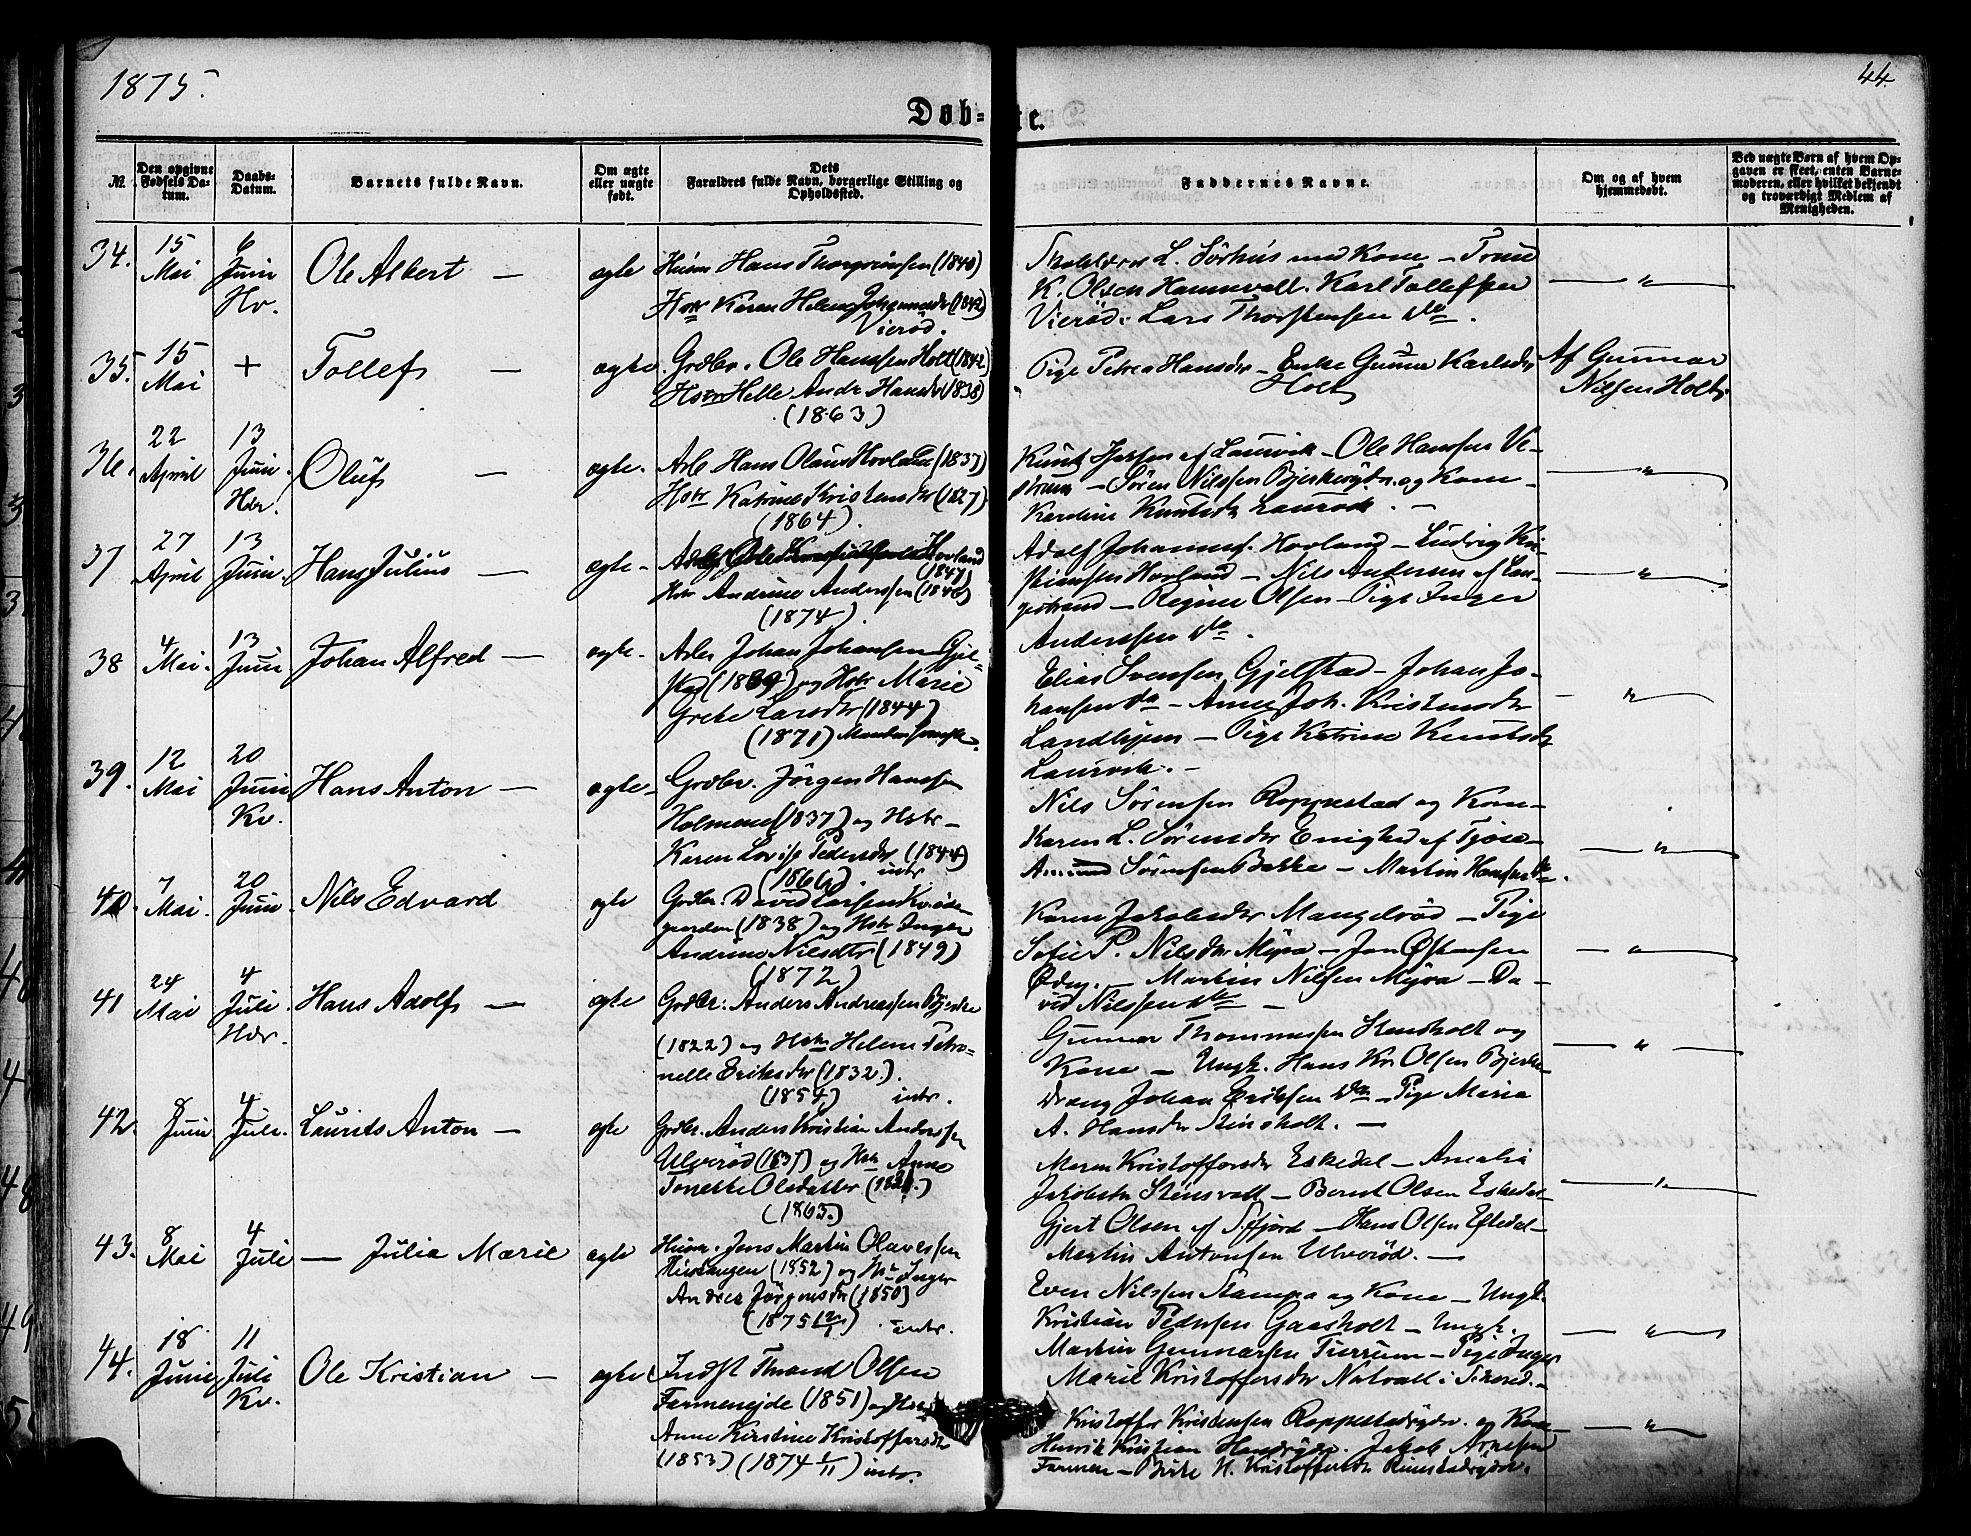 1875.
44.
Døb-te.
№
Den opgivne Fødsels Datum.
Daabs-Datum.
Barnets fulde Navn.
Om ægte eller uægte født.
Dets Forældres fulde Navn, borgerlige Stilling og Opholdssted.
Faddernes Navne.
Om og af hvem hjemmedøbt.
Ved uægte Børn af hvem Opgaven er skeet, enten Barnemoderen, eller hvilket bekjendt og troværdigt Medlem af Menigheden.
34. 15 Mai 6 Juni Hv. Ole Albert — ægte
Husm Hans Thorgrimsen (1840)
Hstr Karen Helene Johannesdr (1842)
Vierød.
Skolelærer L. Sørhus med Kone — Trond
K. Olsen Hannevall. Karl Tollefsen
Vierød. Lars Thorstensen do.
— " —
35. 15 Mai + Tollef — ægte
Grdbr. Ole Hanssen Holt (1842)
Hstr Helle Andr. Hansdr (1838)
(1863)
Pige Petrea Hansdr — Enke Gunner Karlsdr
Holt
Af Gunnar
Nilsen Holt
36. 22 April 13 Juni Hdr. Oluf — ægte.
Arb. Hans Olaus Hovland (1837)
Hstr Katrine Kristensdr (1827)
(1864).
Knut af Laurvik — Ole Hanssen Ve-
— Søren Nilssen Bjerkerygdr. og Kone —
Karoline Knutsdr Laurvik. —
— " —
37 27 April 13 Juni. Hans Julius — ægte —
Hovland
(1847)
Hstr Andrine Anderssen (1846)
(1874).
Adolf Johannesf. Hovland — Ludvig Kri-
stiansen Hovland — Nils Andersen af Lan-
gestrand — Regine Olsen — Pige Inger
Anderssen do.
— " —
38 4 Mai. 13 Juni Johan Alfred — ægte —
Arb. Johan Johansen Gjel-
stad og Hstr Marie
Grete Larsdtr (1844)
(1871)
Elias Svenssen Gjelstad — Johan Jo-
hansen do — Anne Joh. Kristensdr
Landhjem — Pige Katrine Knutsdr
Laurvik. —
— " —
39. 12 Mai 20 Juni Kv. Hans Anton — ægte —
Grdbr. Jørgen Hanssen
Holmene (1837) og Hstr —
Karen Lovise Pedersdr (1844)
(1866). intr
Nils Sørensen Roppestad og Kone —
Karen L. Sørensdr Enighed af Tjøse —
Amund Sørensen Bakke — Martin Hansen do.
— " —
40. 7 Mai. 20 Juni Nils Edvard ægte
Grdbr. David Larsen Kvisle-
gaarden (1838) og Hstr Inger
Andrine Nilsdtr (1849)
(1872)
Karen Jakobsdr Mangelrød — Pige
Sofie P. Nilsdr Myra — Jon Østensen
— Martin Nilsen Myra — Da-
vid Nilssen do —
— " —
41 24 Mai 4 Juli Hdr. Hans Adolf — ægte
Grdbr. Anders Andreassen Bjerke
(1822) og Hstr Helene Petro-
nelle Eriksdr (1832).
(1854) intr.
Gunnar Thommessen Stensholt og
Kone — Ungk. Hans Kr. Olsen Bjerke —
dreng Johan Eriksen do — Pige Maria
A. Hansdr Stensholt. —
— " —
42. 8 Juni 4 Juli. Laurits Anton — ægte
Grdbr. Anders Kristian Anderssen
Ulverød (1837) og Hstr Anne
Tonette Olsdatter
(1863.)
Maren Kristoffersdr Eskedal — Amalia
Jakobsdr Stensvall — Bernt Olsen Eskedal —
Gjert Olsen af S.fjord — Hans Olsen Eskedal —
Martin Antonsen Ulverød. —
— " —
43. 8 Mai 4 Juli — Julia Marie ægte
Husm. Jens Martin Olavessen
(1852) og Hstr Inger
Andrea Jørgensdr (1850)
(1875) intr.
Even Nilssen Stampa og Kone — Ungk.
Kristian Pedersen Gaasholt — Ungk.
Martin Gunnarsen Tjerrum — Pige Inger
Marie Kristoffersdr Natvall i
— " —
44. 18 Juni 11 Juli Kv. Ole Kristian — ægte
Indst Thrond Olsen
Farmenejde (1851) og Hstr
Anne Kirstine Kristoffersdr
(1853) (1874) intr.
Kristoffer Kristensen Roppestadrydn. og Kone —
Henrik Kristian Jakob Arnesen
Farmen — Birte N. Kristoffersdr Rimstadrydn.
— " —